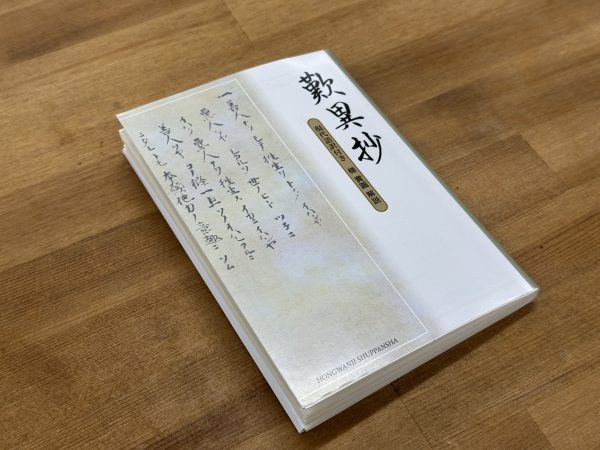 歎異抄
現代語訳付き 梯 實圓 解説
一 善人ナヲモテ往生ヲトク イハンヤ
悪人ヲヤ シカルヲ世ノヒトツネニ
イハク悪人ナヲ往生ス イカニイハンヤ
善人ヲヤ コノ條一旦ソノイハレアルニ
ニタレトモ本願他力ノ意趣ニソム
HONGWANJI SHUPPANSHA